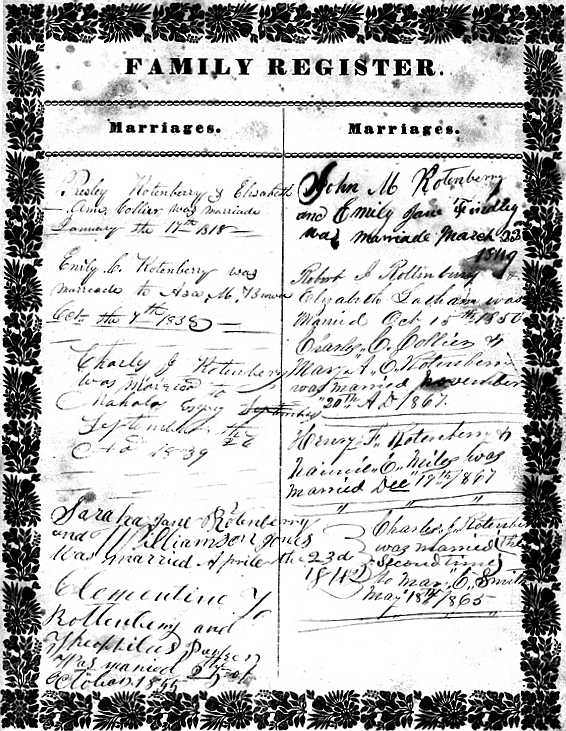 FAMILY REGISTER.
Marriages.
Presley Rotenberry & Elisabeth
Ann Collier was marriade
January the 17th 1818
Emily C. Rotenberry was
marriade to Asa M. Brown
Oct. the 7th 1838
Charly J Rotenberry
was married to
Mahala September
September the 26
AD 1839
Sarah Jane Rotenberry
and Williamson Jones
was married Aprile the 23d
Clementine
Rottenberry and
Theophilus
Was married
October 1855
Marriages.
John M Rotenberry
and Emily Jane Findley
was marriade March 22
1849
Robert J Rottenbury &
Elizabeth Latham was
Married Oct 15th 1850
Charly C. Collier &
Mary A. C. Rotenberry
was married november
"20th AD 1867.
Henry F. Rotenberry &
Nannie C. Niles was
married Dec 19th 1867
Charles J. Rotenber
was married (the
second time)
to Mary C. Smith
May 18th 1865